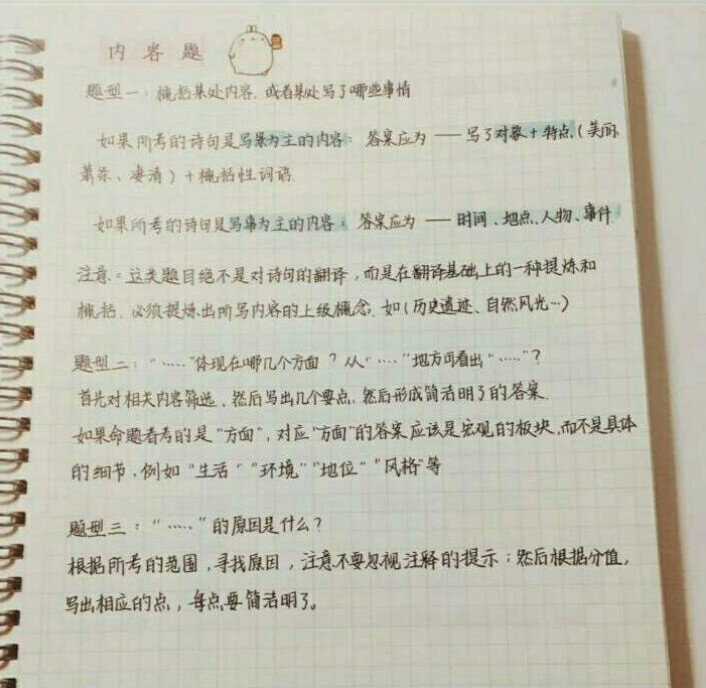 内容题
题型一：概括某处内容，或者某处写了哪些事情
如果所考的诗句是写景为主的内容：答案应为——写了对象+特点（美丽、
萧条、凄清）+概括性词语
如果所考的诗句是写事为主的内容：答案应为——时间、地点、人物、事件
注意：这类题目绝不是对诗句的翻译，而是在翻译基础上的一种提炼和
概括，必须提炼出所写内容的上级概念。如（历史遗迹、自然风光…）
题型二：“……”体现在哪几个方面？从“……”地方可看出“……”？
首先对相关内容筛选，然后写出几个要点，然后形成简洁明了的答案。
如果命题者考的是“方面”，对应“方面”的答案应该是宏观的板块，而不是具体
的细节，例如“生活”“环境”“地位”“风格”等
题型三：“……”的原因是什么？
根据所考的范围，寻找原因，注意不要忽视注释的提示；然后根据分值，
写出相应的点，每点要简洁明了。